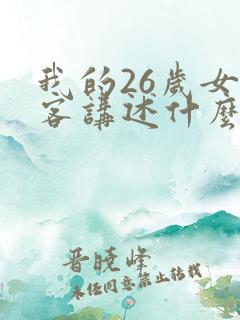 我的26歲女
客講述什麼
晋晓峰
未经同意禁止转载